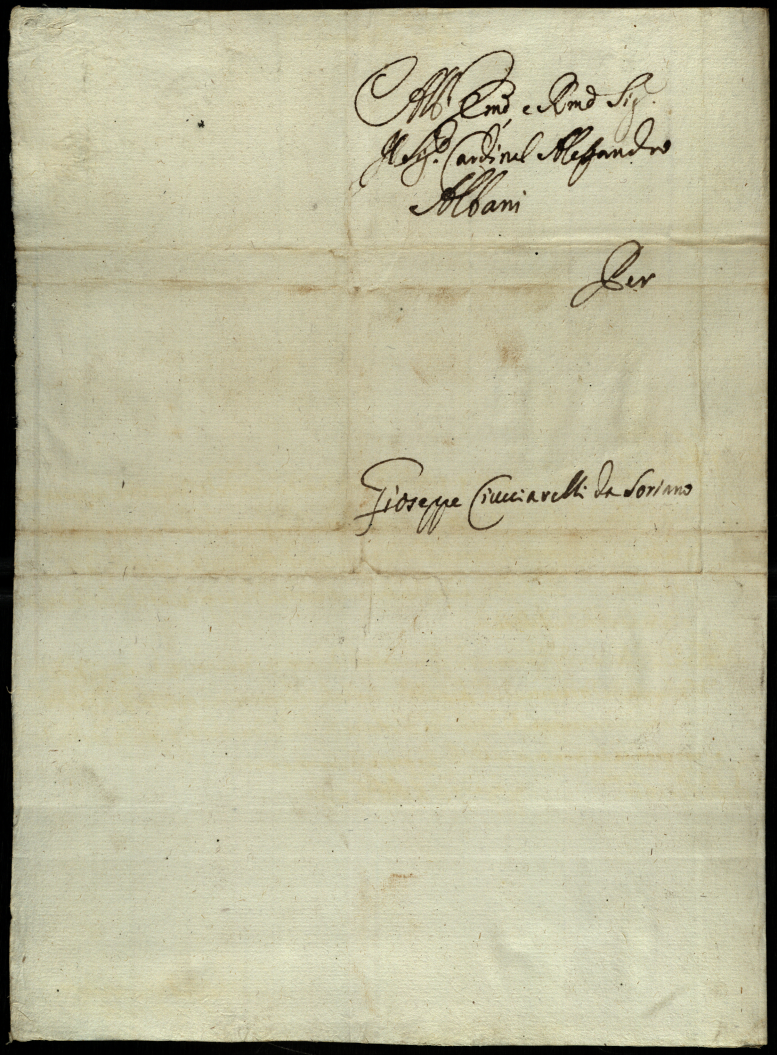 All' Emo e Rmo Sig.
Il Sigr. Cardinal Alessandro
Albani
Per
Gioseppe Ciucciarelli da Soriano